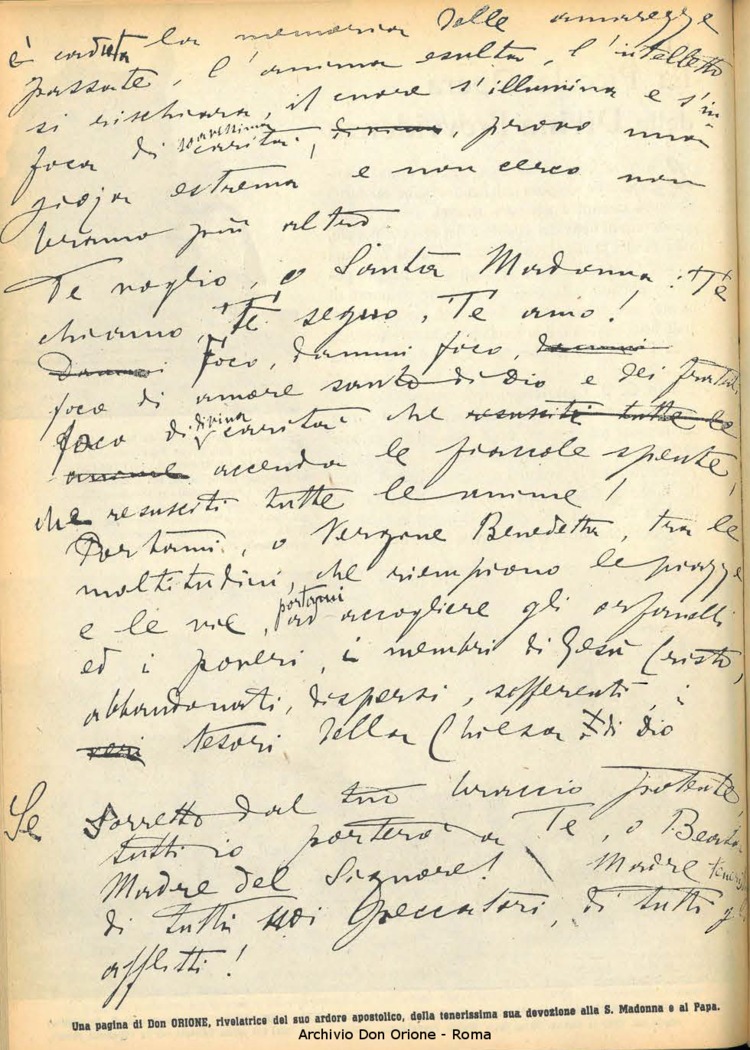 è caduta la memoria delle amarezze
passate, l'anima esulta, l'intelletto
si rischiara, il cuore s'illumina e s'in-
foca di soavissima carità, provo una
gioja estrema e non cerco non
bramo più altro
Te voglio, o Santa Madonna: Te
chiamo, Te seguo, Te amo!
Foco, dammi foco,
foco di amore santo di Dio e dei fratelli,
foco di divina carità che resusciti tutte le
anime accenda le fiaccole spente,
che resusciti tutte le anime!
Portami, o Vergine Benedetta, tra le
moltitudini, che riempiono le piazze
e le vie, portami ad accogliere gli orfanelli
ed i poveri, i membri di Gesù Cristo,
abbandonati, dispersi, sofferenti, i
veri tesori della Chiesa di Dio
Se sorretto dal tuo braccio potente,
tutti io porterò a Te, o Beata
Madre del Signore! Madre
di tutti noi peccatori, di tutti gli
afflitti!
Una pagina di Don ORIONE, rivelatrice del suo ardore apostolico, della tenerissima sua devozione alla S. Madonna e al Papa.
Archivio Don Orione - Roma